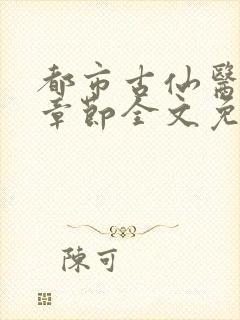 都市古仙醫
章節全文免
陳可